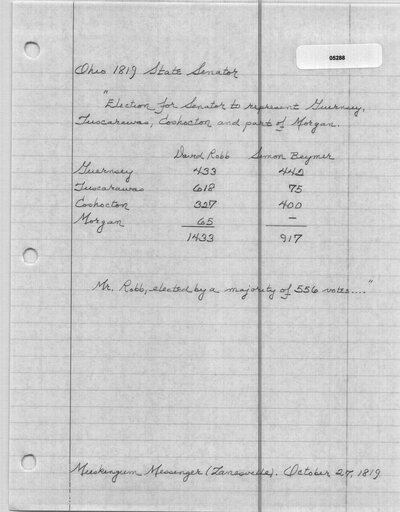 05288
Ohio 1819 State Senator
"
Election for Senator to represent Guernsey,
Tuscarawas, Coshocton and part of Morgan.
David Robb Simon Beymer
Guernsey 433 442
Tuscarawas 618 75
Coshocton 327 400
Morgan 65 —
1433 917
Mr. Robb, elected by a majority of 556 votes...."
Muskingum Messenger (Zanesville). October 27, 1819